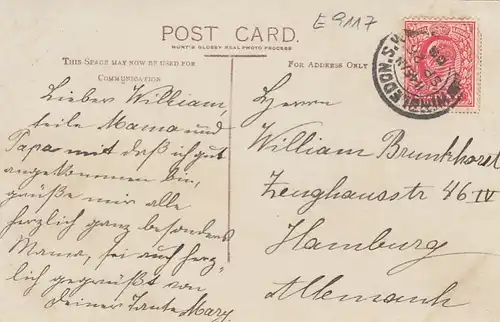 E 9117
POST CARD.
HUNT'S GLOSSY REAL PHOTO PROCESS
THIS SPACE MAY NOW BE USED FOR
COMMUNICATION
FOR ADDRESS ONLY
WIMBLEDON. S.W.
Lieber William,
teile Mama und
Papa mit daß ich gut
angekommen bin,
grüße mir alle
herzlich ganz besonders
Mama, sei auch herz-
lich gegrüßt von
deiner Tante Mary.
Herrn
William Brunkhorst
Zeughausstr 46 IV
Hamburg
Allemanh